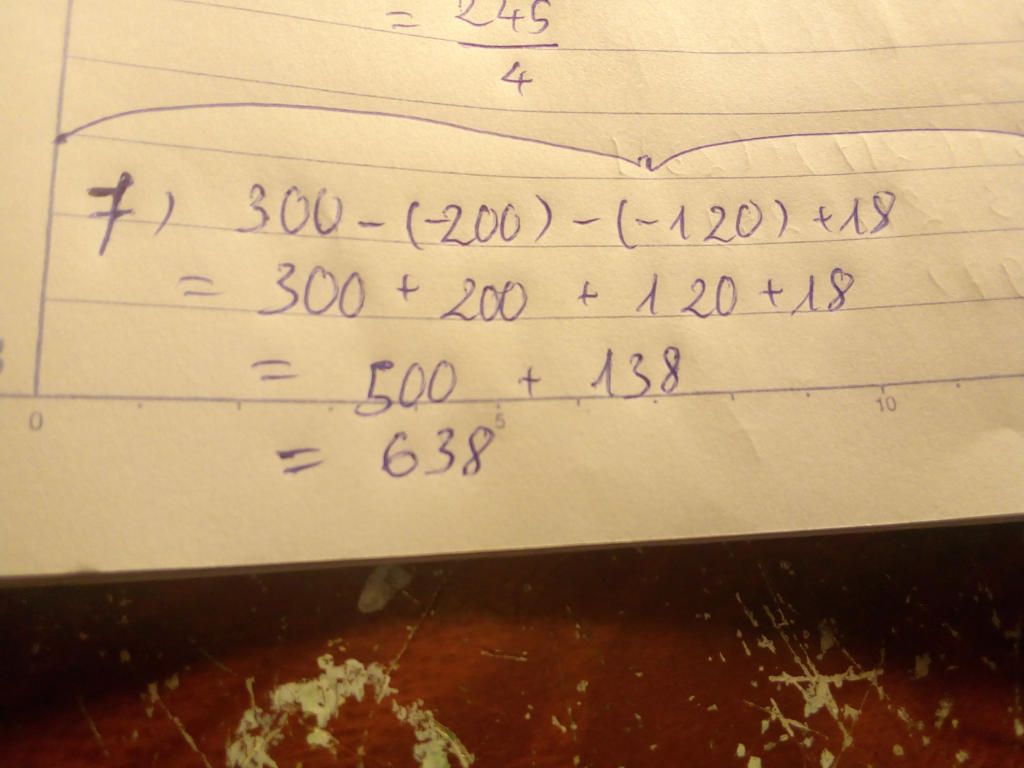 = 245
4
7) 300 - (-200) - (-120) + 18
= 300 + 200 + 120 + 18
= 500 + 138
0 5 10
= 638